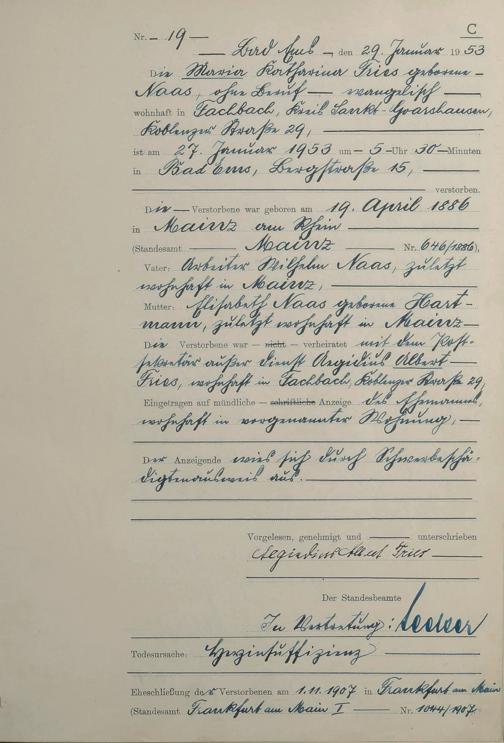 C
Nr. 19
Bad Ems, den 29. Januar 1953
Die Maria Katharina Fries geborene
Naas, ohne Beruf — evangelisch
wohnhaft in Fachbach, Kreis Sankt-Goarshausen,
Koblenzer Straße 29,
ist am 27. Januar 1953 um 5 Uhr 30 Minuten
in Bad Ems, Bergstraße 15,
verstorben.
Die Verstorbene war geboren am 19. April 1886
in Mainz am Rhein
(Standesamt Mainz Nr. 646/1886).
Vater: Arbeiter Wilhelm Naas, zuletzt
wohnhaft in Mainz,
Mutter: Elisabeth Naas geborene Hart-
mann, zuletzt wohnhaft in Mainz
Die Verstorbene war — nicht — verheiratet mit dem Post-
sekretär außer Dienst Aegidius Albert
Fries, wohnhaft in Fachbach, Koblenzer Straße 29,
Eingetragen auf mündliche — schriftliche — Anzeige des Ehemannes,
wohnhaft in vorgenannter Wohnung,
Der Anzeigende wies sich durch Schwerbeschä-
digtenausweis aus.
Vorgelesen, genehmigt und unterschrieben
Aegidius Albert Fries
Der Standesbeamte
In Vertretung:
Todesursache: Herzinsuffizienz
Eheschließung der Verstorbenen am 1.11.1907 in Frankfurt am Main
(Standesamt Frankfurt am Main I Nr. 1044/1907